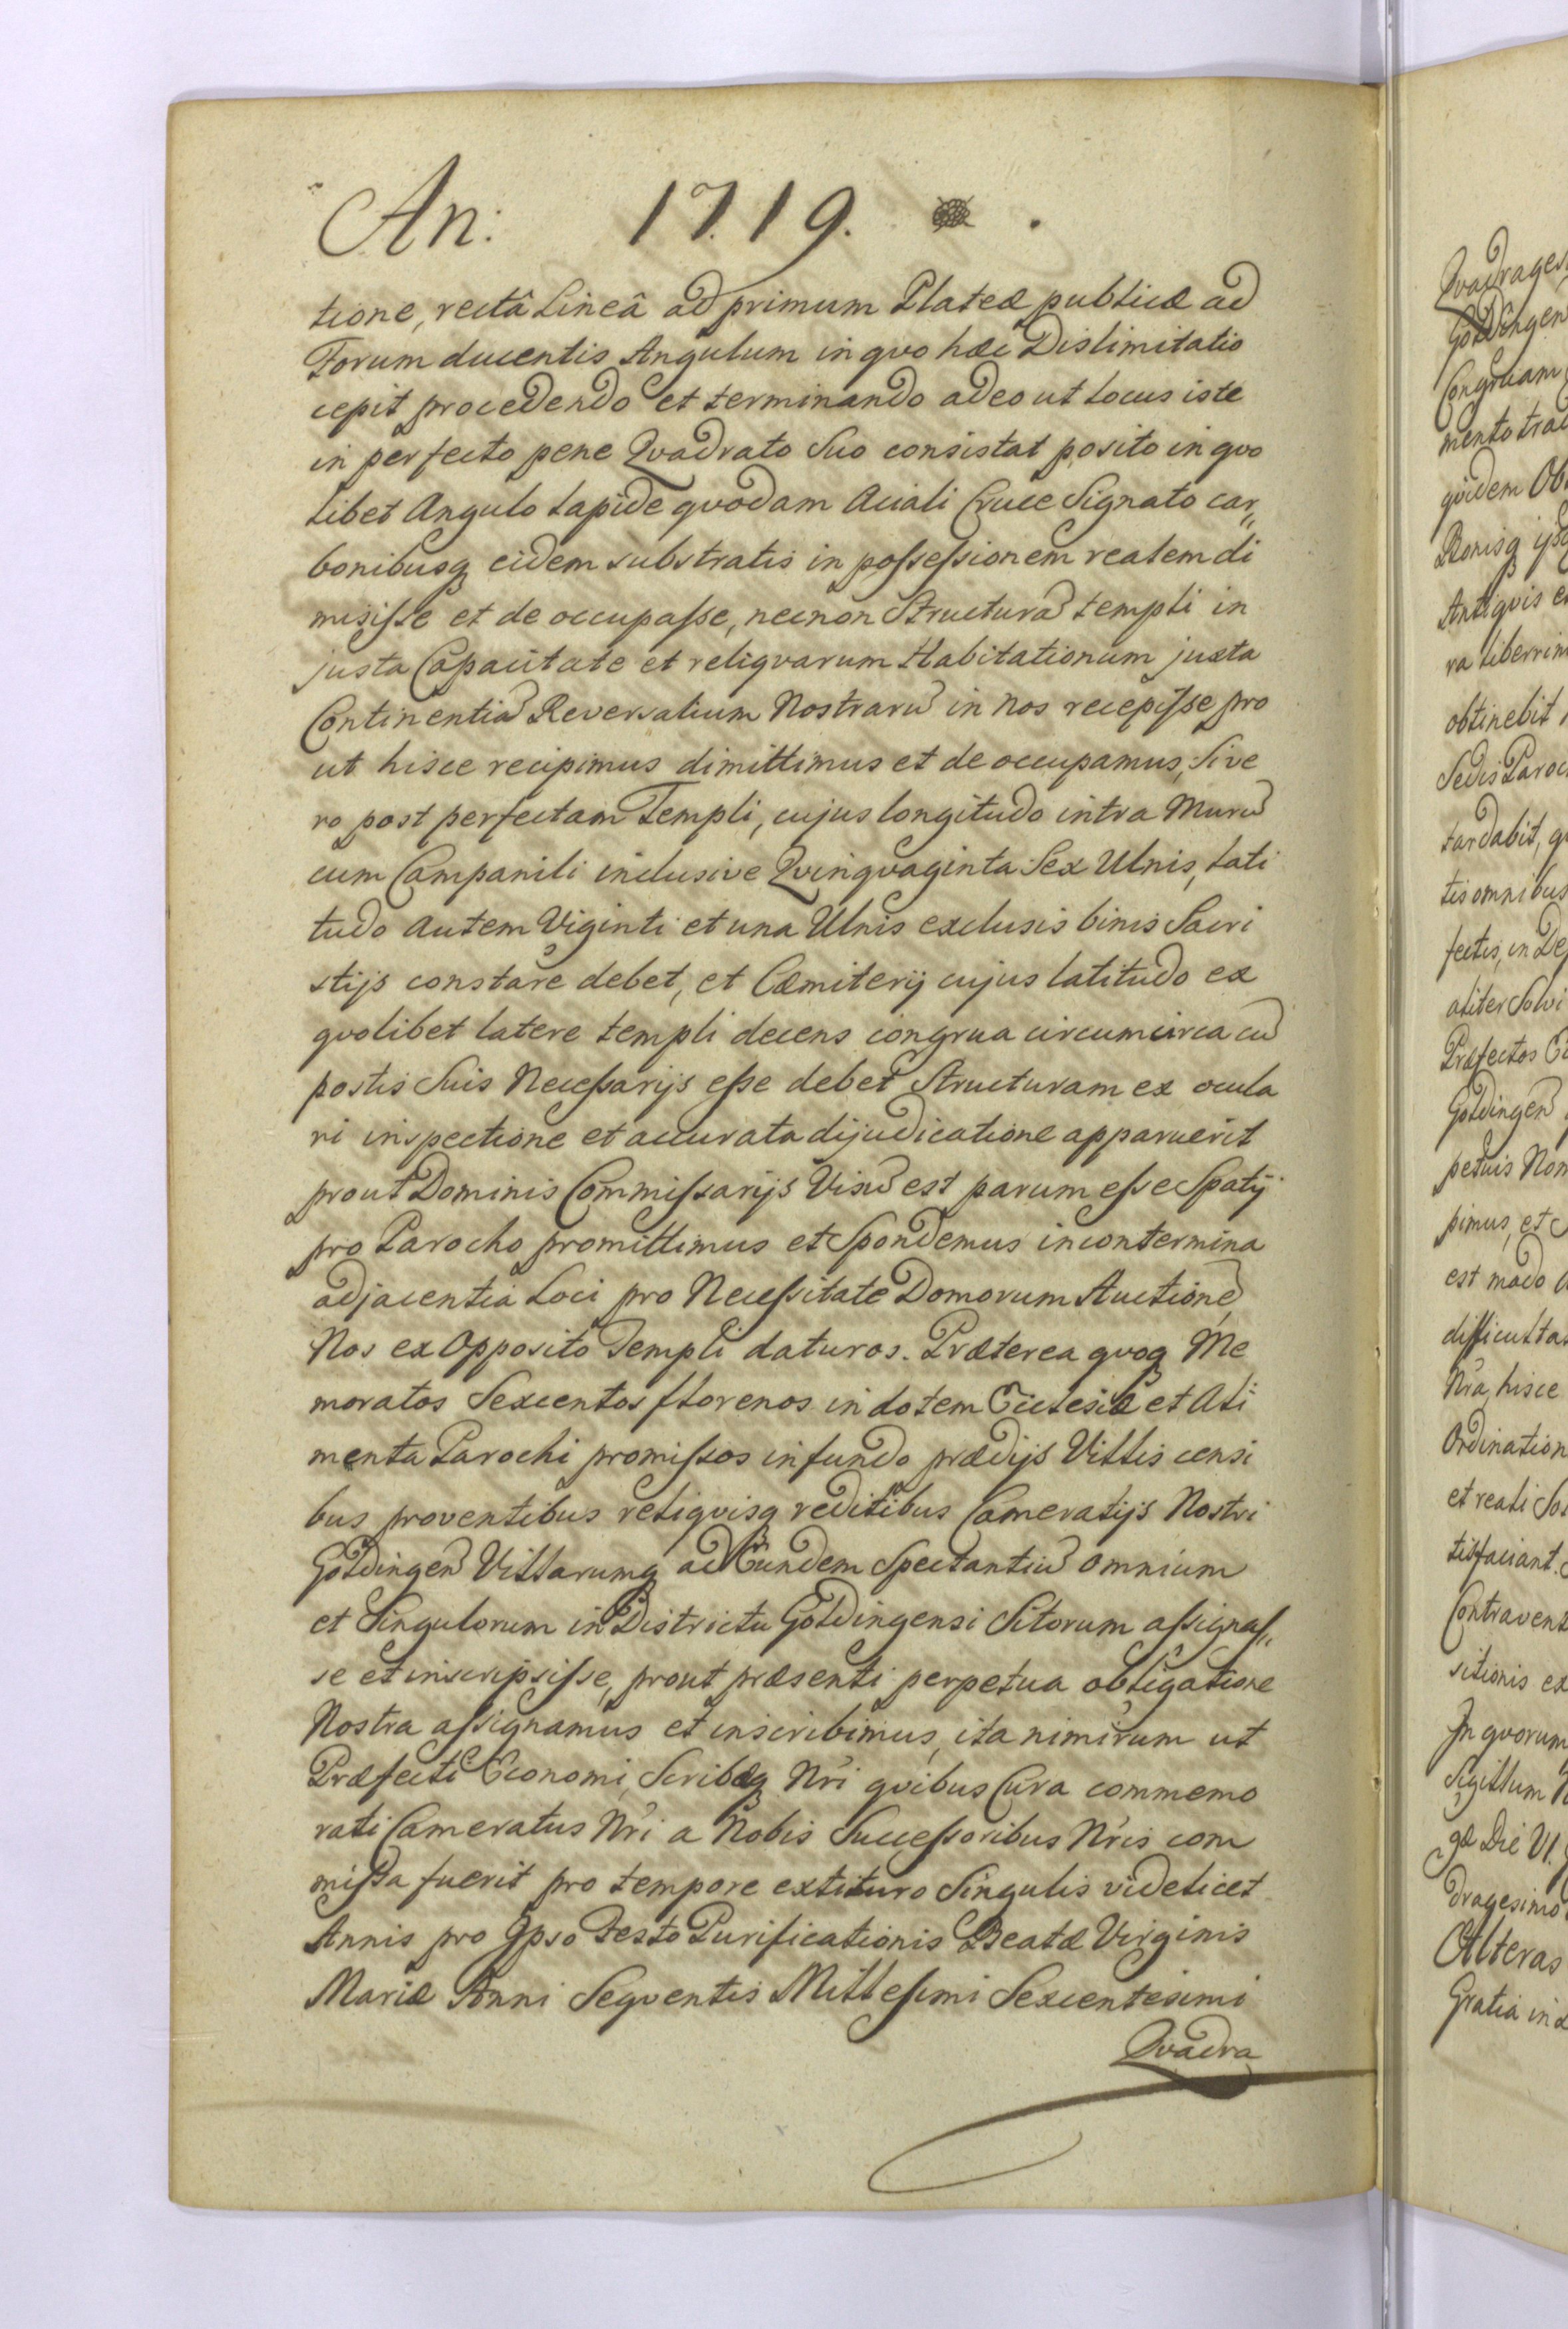 An: 1719.
tione, rectâ Lineâ ad primum Plateæ publicæ ad
Forum ducentis Angulum in qvo hæc Dislimitatio
cepit procedendo et terminando adeo ut Locus iste
in perfecto pene Qvadrato Suo consistat posito in qvo
libet Angulo Lapide qvodam Aciali Cruce Signato car„
bonibusq eidem substratis in poſseſsionem realem di
misiſse et de occupaſse, necnon Structurã templi in
justa Capacitate et reliqvarum Habitationum juxta
Continentiã Reversalium Nostrarũ in nos recepiſse pro
ut hisce recipimus dimittimus et de occupamus, Sive
ro post perfectam Templi, cujus longitudo intra Murũ
cum Campanili inclusive Qvinqvaginta Sex Ulnis, Lati
tudo autem Viginti et una Ulnis exclusis binis Sacri
stijs constare debet, et Cæmiterij cujus latitudo ex
qvolibet latere templi decens congrua circumcirca cũ
postis Suis Neceſsarijs eſse debet Structuram ex ocula
ri inspectione et accurata dijudicatione apparuerit
prout Dominis Commiſsarijs Visũ est parum eſse Spatij
pro Parocho promittimus et Spondemus incontermina
adjacentia Loci pro Neceſsitate Domorum Auctionẽ
Nos ex Opposito Templi daturos. Præterea qvoq Me
moratos Sexcentos florenos in dotem Ecclesiæ et Ali
menta Parochi promiſsos in fundo prædijs Villis censi
bus proventibus reliqvisq reditibus Cameratijs Nostri
Goldingeñ Villarumq ad Eundem Spectantiũ omnium
et Singulorum in Districtu Goldingensi Sitorum aſsignaſ„
se et inscripsiſse, prout præsenti perpetua obligatione
Nostra aſsignamus et inscribimus, ita nimirum ut
Præfecti Economi, Scribæq Nri qvibus Cura commemo
rati Cameratus Nri a Nobis Succeſsoribus Nris com
miſsa fuerit pro tempore extituro Singulis videlicet
Annis pro Ipso Festo Purificationis Beatæ Virginis
Mariæ Anni Seqventis Milleſimi Sexcentesimi
Qvadra
Qvadrages
Goldingen
Congruam
mento trad
qvidem Ob
Antiqvis
ra liberrim
obtinebit
Sedis Paroc
tardabit, q
tis omnibus
fectis, in De
aliter Solvi
Præfectos
Goldingeñ
petuis Nom
pimus, et
est modo
difficulta
Nra, hisce
Ordination
et reali So
tisfaciant.
Contraveni
sitionis ex
In qvorum
Sigillum N
gæ Die VI.
dragesimo
Alteras
Gratia in